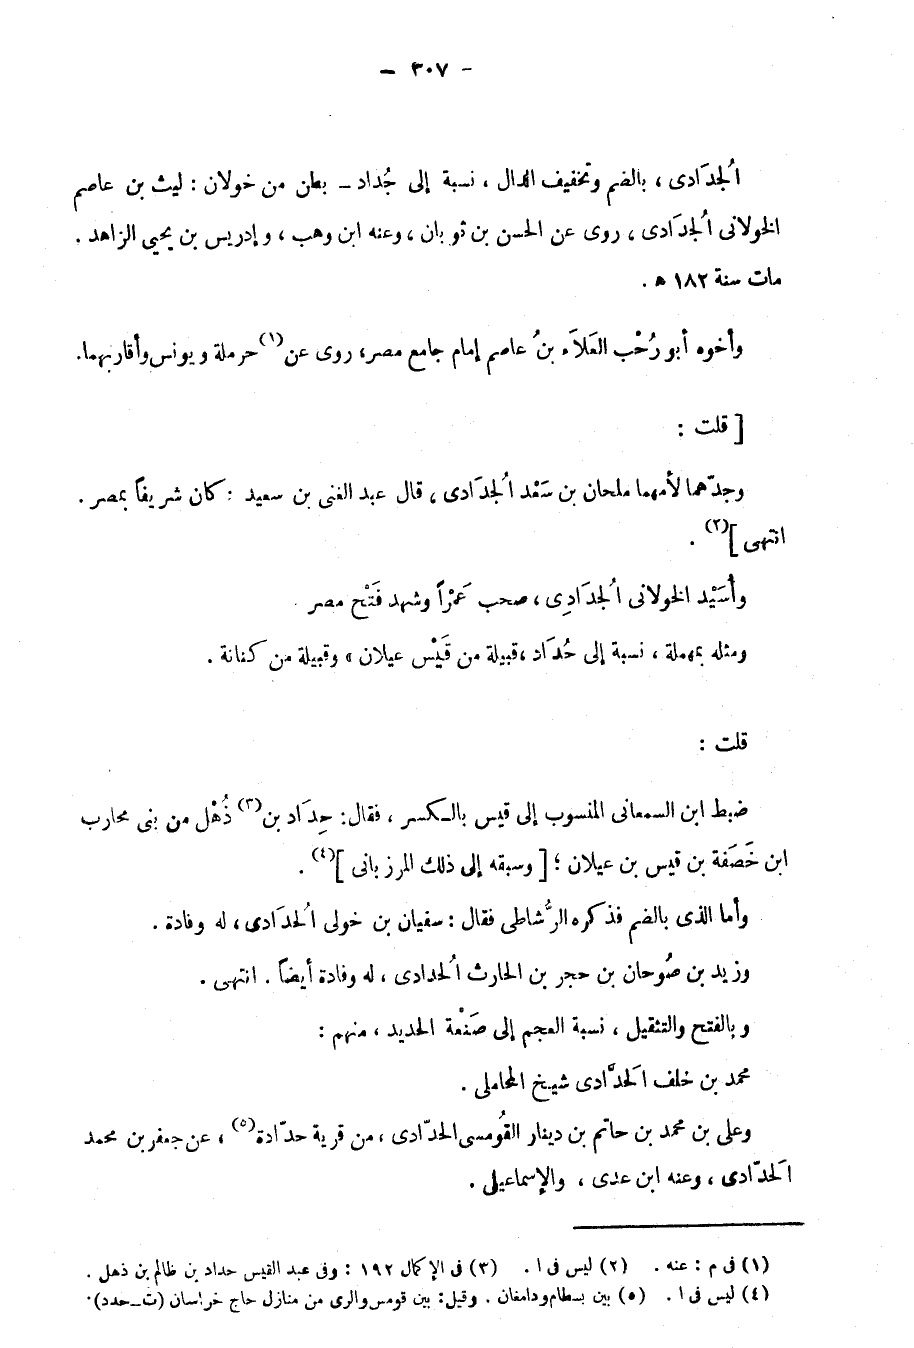 - ٣٠٧ -
الجُدَادى ، بالضم وتخفيف الدال ، نسبة إلى جُداد - بطن من خولان : ليث بن عاصم
الخولانى الجُدَادى ، روى عن الحسن بن ثوبان ، وعنه ابن وهب ، وإدريس بن يحيى الزاهد .
مات سنة ١٨٢ ه .
وأخوه أبو رُحْب العَلاَء بنُ عاصم إمام جامع مصر، روى عن(١) حرملة ويونس وأقاربهما.
[ قلت :
وجدّهما لأمهما ملحان بن سَعْد الجُدَادى ، قال عبد الغنى بن سعيد : كان شريفاً بمصر .
انتهى ](٢) .
وأُسَيْد الخولانى الجُدَادِى ، صحب عَمْرًا وشهد فَتْح مصر .
ومثله بمهملة ، نسبة إلى حُدَاد ، قبيلة من قَيْس عيلان » وقبيلة من كنانة .
قلت :
ضبط ابن السمعانى المنسوب إلى قيس بالكسر ، فقال: حِدَاد بن(٣) ذُهْل من بنى محارب
ابن خَصَفة بن قيس بن عيلان ؛ [ وسبقه إلى ذلك المرزبانى ](٤) .
وأما الذى بالضم فذكره الرُّشاطى فقال : سفيان بن خولى الحُدَادى ، له وفادة .
وزيد بن صُوحان بن حجر بن الحارث الحُدادى ، له وفادة أيضاً . انتهى .
وبالفتح والتثقيل ، نسبة العجم إلى صَنْعة الحديد ، منهم :
محمد بن خلف الحَدَّادى شيخ المحاملى .
وعلى بن محمد بن حاتم بن دينار القُومسى الحدّادى ، من قرية حدّادة(٥) ، عن جعفر بن محمد
الحَدّادى ، وعنه ابن عدى ، والإسماعيلى .
(١) فى م : عنه . (٢) ليس فى ا . (٣) فى الإكمال ١٩٢ : وفى عبد القيس حداد بن ظالم بن ذهل .
(٤) ليس فى ا . (٥) بين بسطام ودامغان . وقيل: بين قومس والرى من منازل حاج خراسان (ت-حدد).